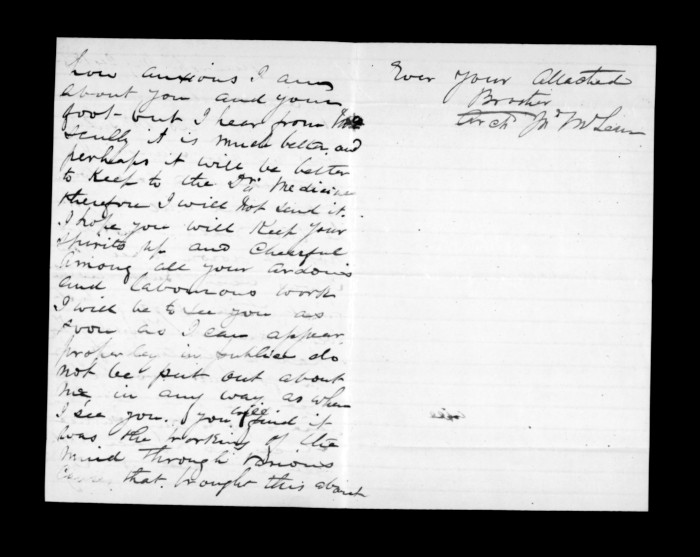 how anxious I am
about you and your
foot - but I hear from
Scully it is much better, and
perhaps it will be better
to Keep to the Drs Medicine
therefore I will not send it.
I hope you will Keep your
Spirits up and cheerful
among all your arduous
and labourious work
I will be to see you as
soon as I can appear
properley in Publice do
not be put out about
me in any way as when
I see you. You will find it
was the working of the
mind through various
that brought this about
Ever your Attached
Brother
Archd Mc McLean